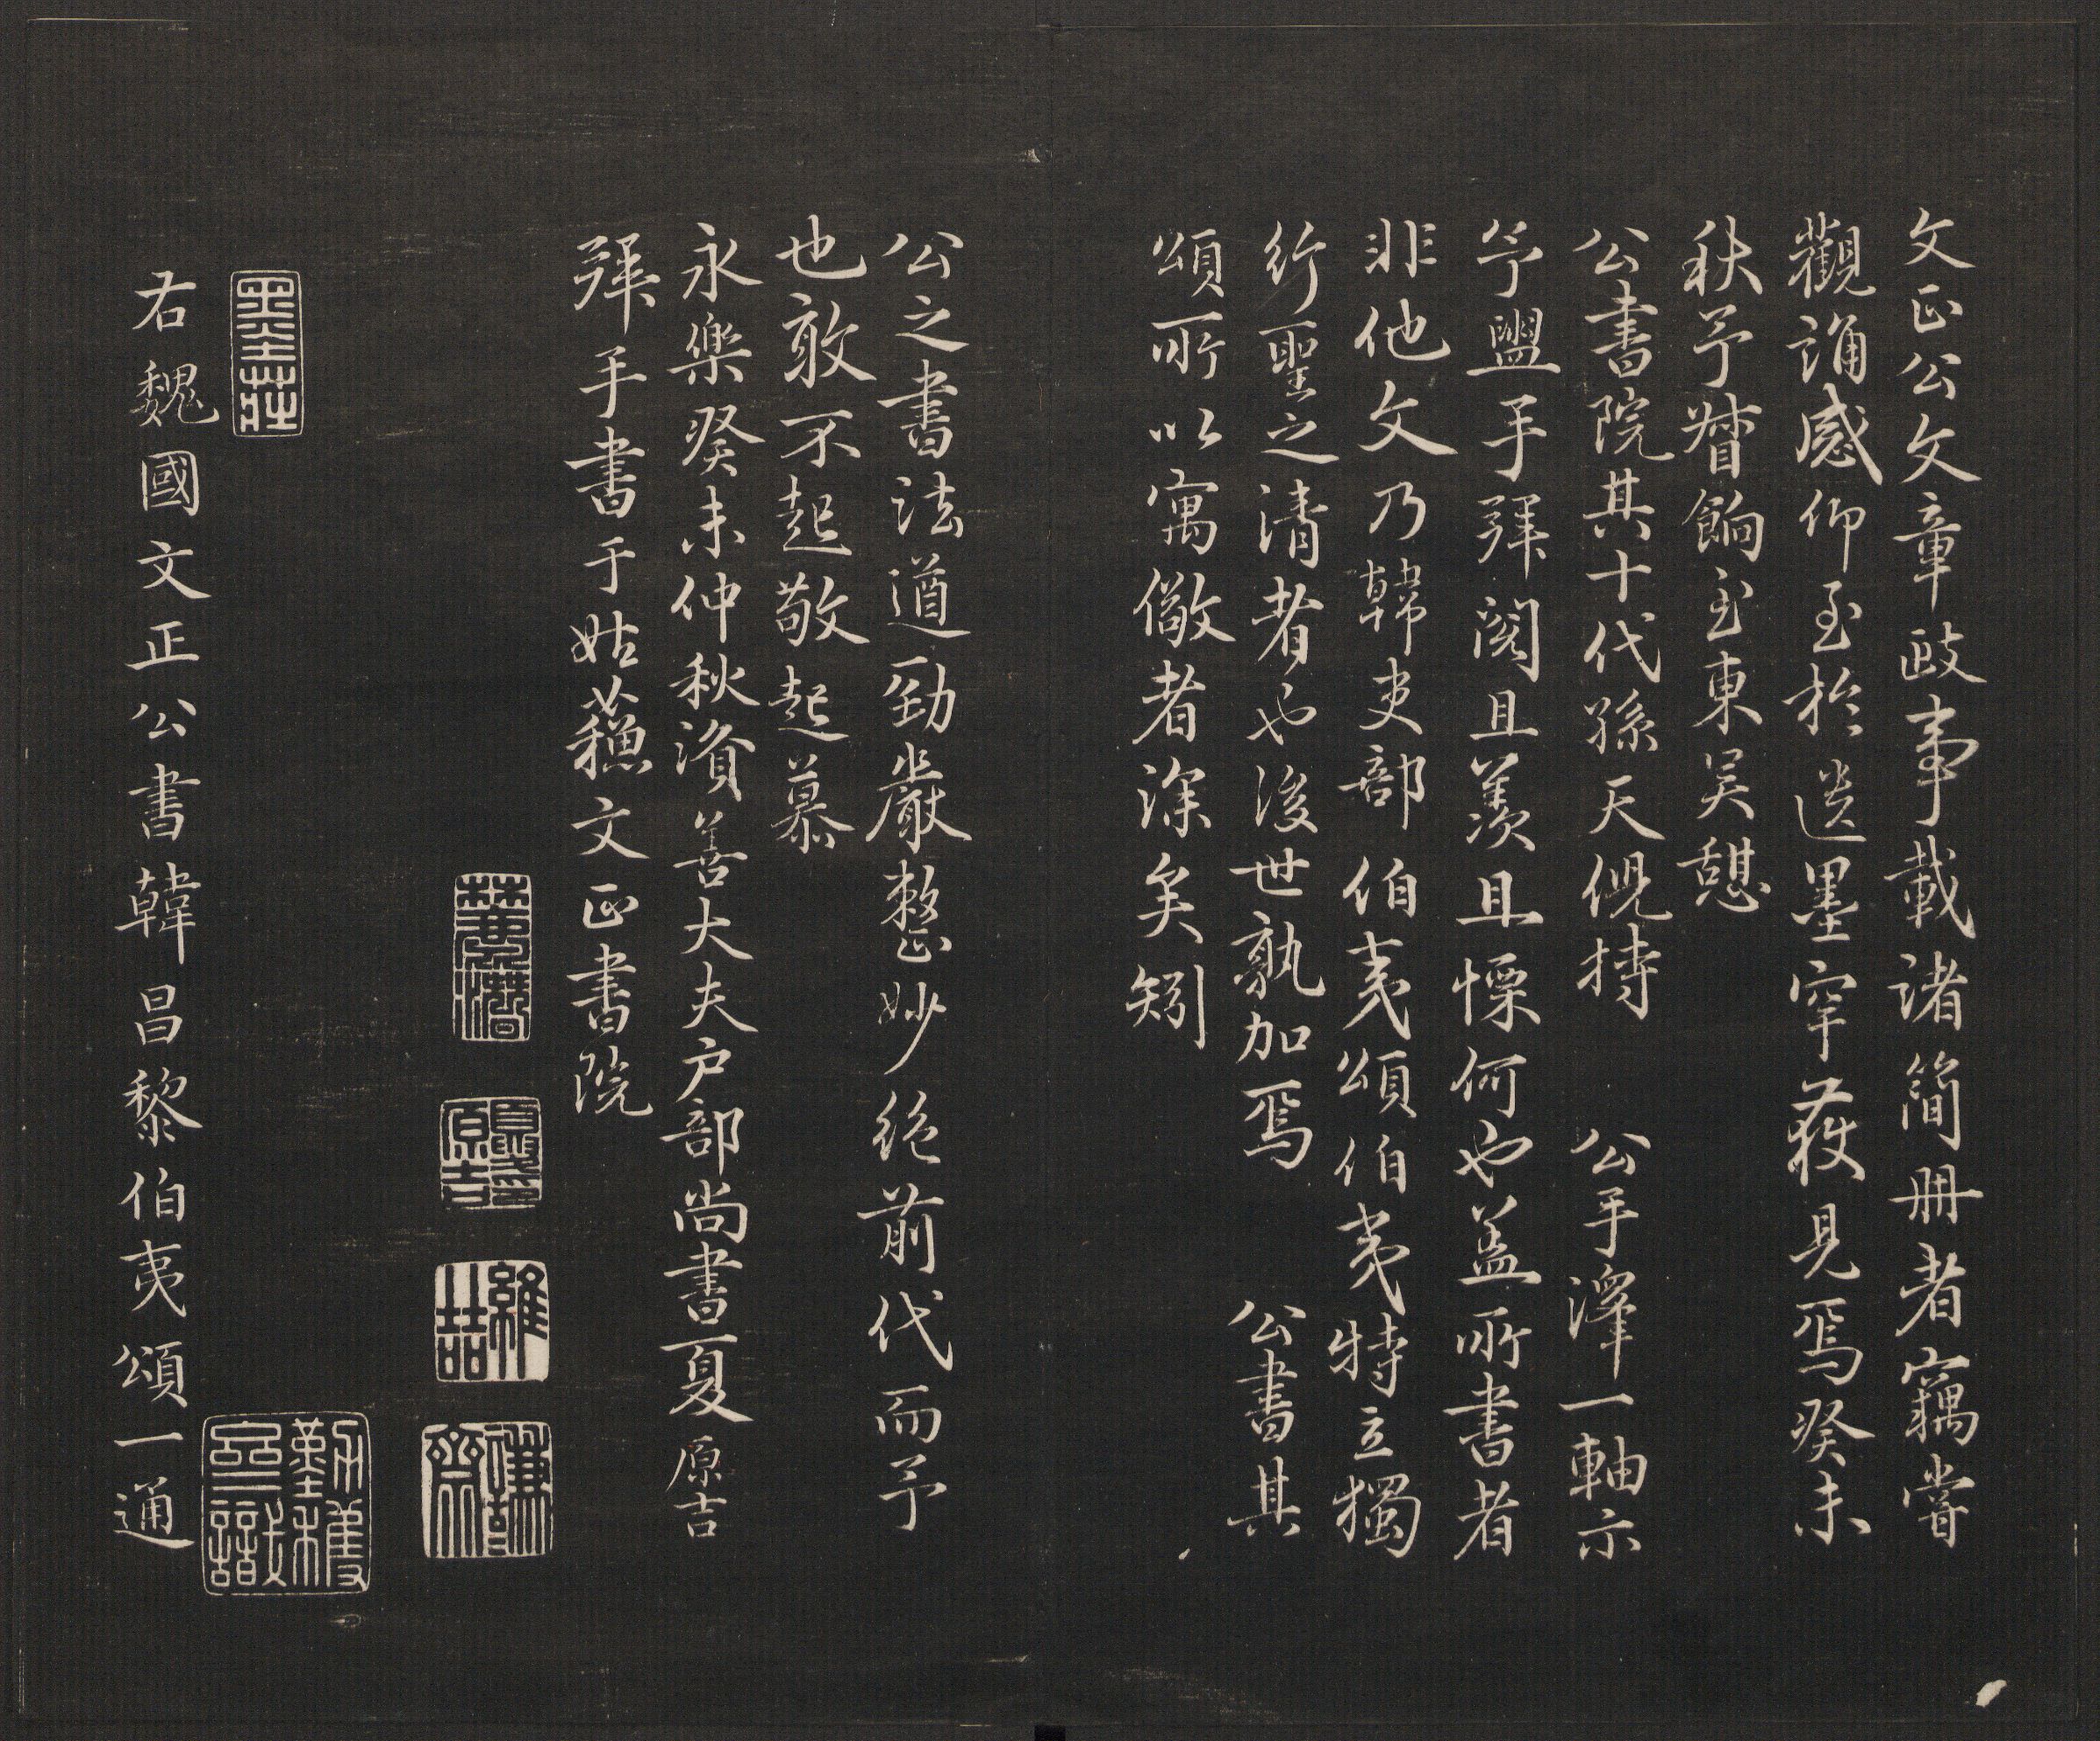 文正公文章政事載諸簡冊者竊嘗
觀誦感仰至於遺墨罕獲見焉癸未
秋予督餉至東吳憩
公書院其十代孫天倪持　公手澤一軸示
予盥手拜閱且羨且慄何也蓋所書者
非他文乃韓吏部伯夷頌伯夷特立獨
行聖之清者也後世孰加焉　公書其
頌所以寓儆者深矣矧
公之書法遒勁嚴整妙絕前代而予
也敢不起敬起慕
永樂癸未仲秋資善大夫戶部尚書夏原吉
拜手書于姑蘓文正書院
夏原吉印
謙齋
墨莊
右魏國文正公書韓昌黎伯夷頌一通